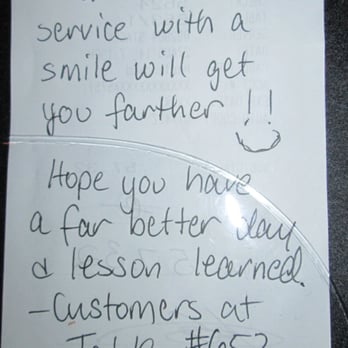 service with a
smile will get
you farther !!
Hope you have
a far better day
& lesson learned.
-Customers at
Table #652